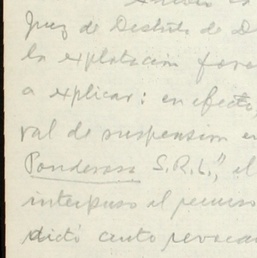 Juez de Distrito de D
la explotación fore
a explicar: en efecto,
val de suspensión en
Ponderosa S.R.L.", el
interpuso el recurso
dictó auto revocan